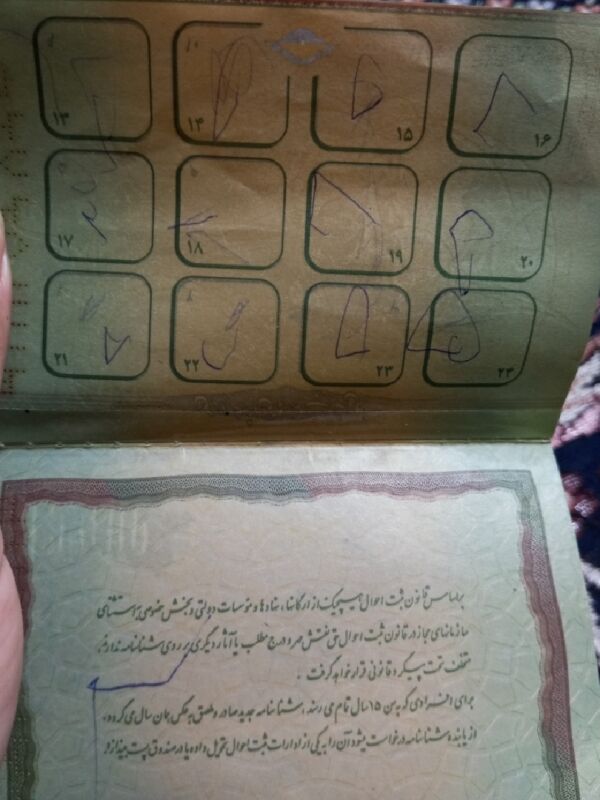 ۱۳ ۱۴ ۱۵ ۱۶
۱۷ ۱۸ ۱۹ ۲۰
۲۱ ۲۲ ۲۳ ۲۴
براساس قانون ثبت احوال هیچیک از ارگانها، نهادها و مؤسسات دولتی و بخش خصوصی به استثنای
سازمانهای مجاز در قانون ثبت احوال حق نقش مهر و درج مطلب یا آثار دیگری بر روی شناسنامه ندارند.
متخلف تحت پیگرد قانونی قرار خواهد گرفت .
برای افرادی که به سن ۱۵ سال تمام می رسند، شناسنامه جدید صادر و ملصق به عکس همان سال می گردد.
از یابنده شناسنامه درخواست میشود آن را به یکی از ادارات ثبت احوال تحویل داده یا در صندوق پست بیندازد